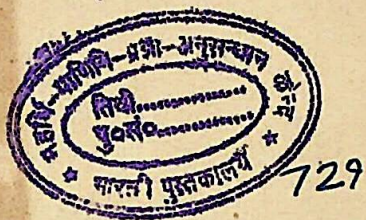 महर्षि-पाणिनि-प्रभा-अनुसन्धान
तिथी..............
पु०सं०..............
★ भारती पुस्तकालय ★
729